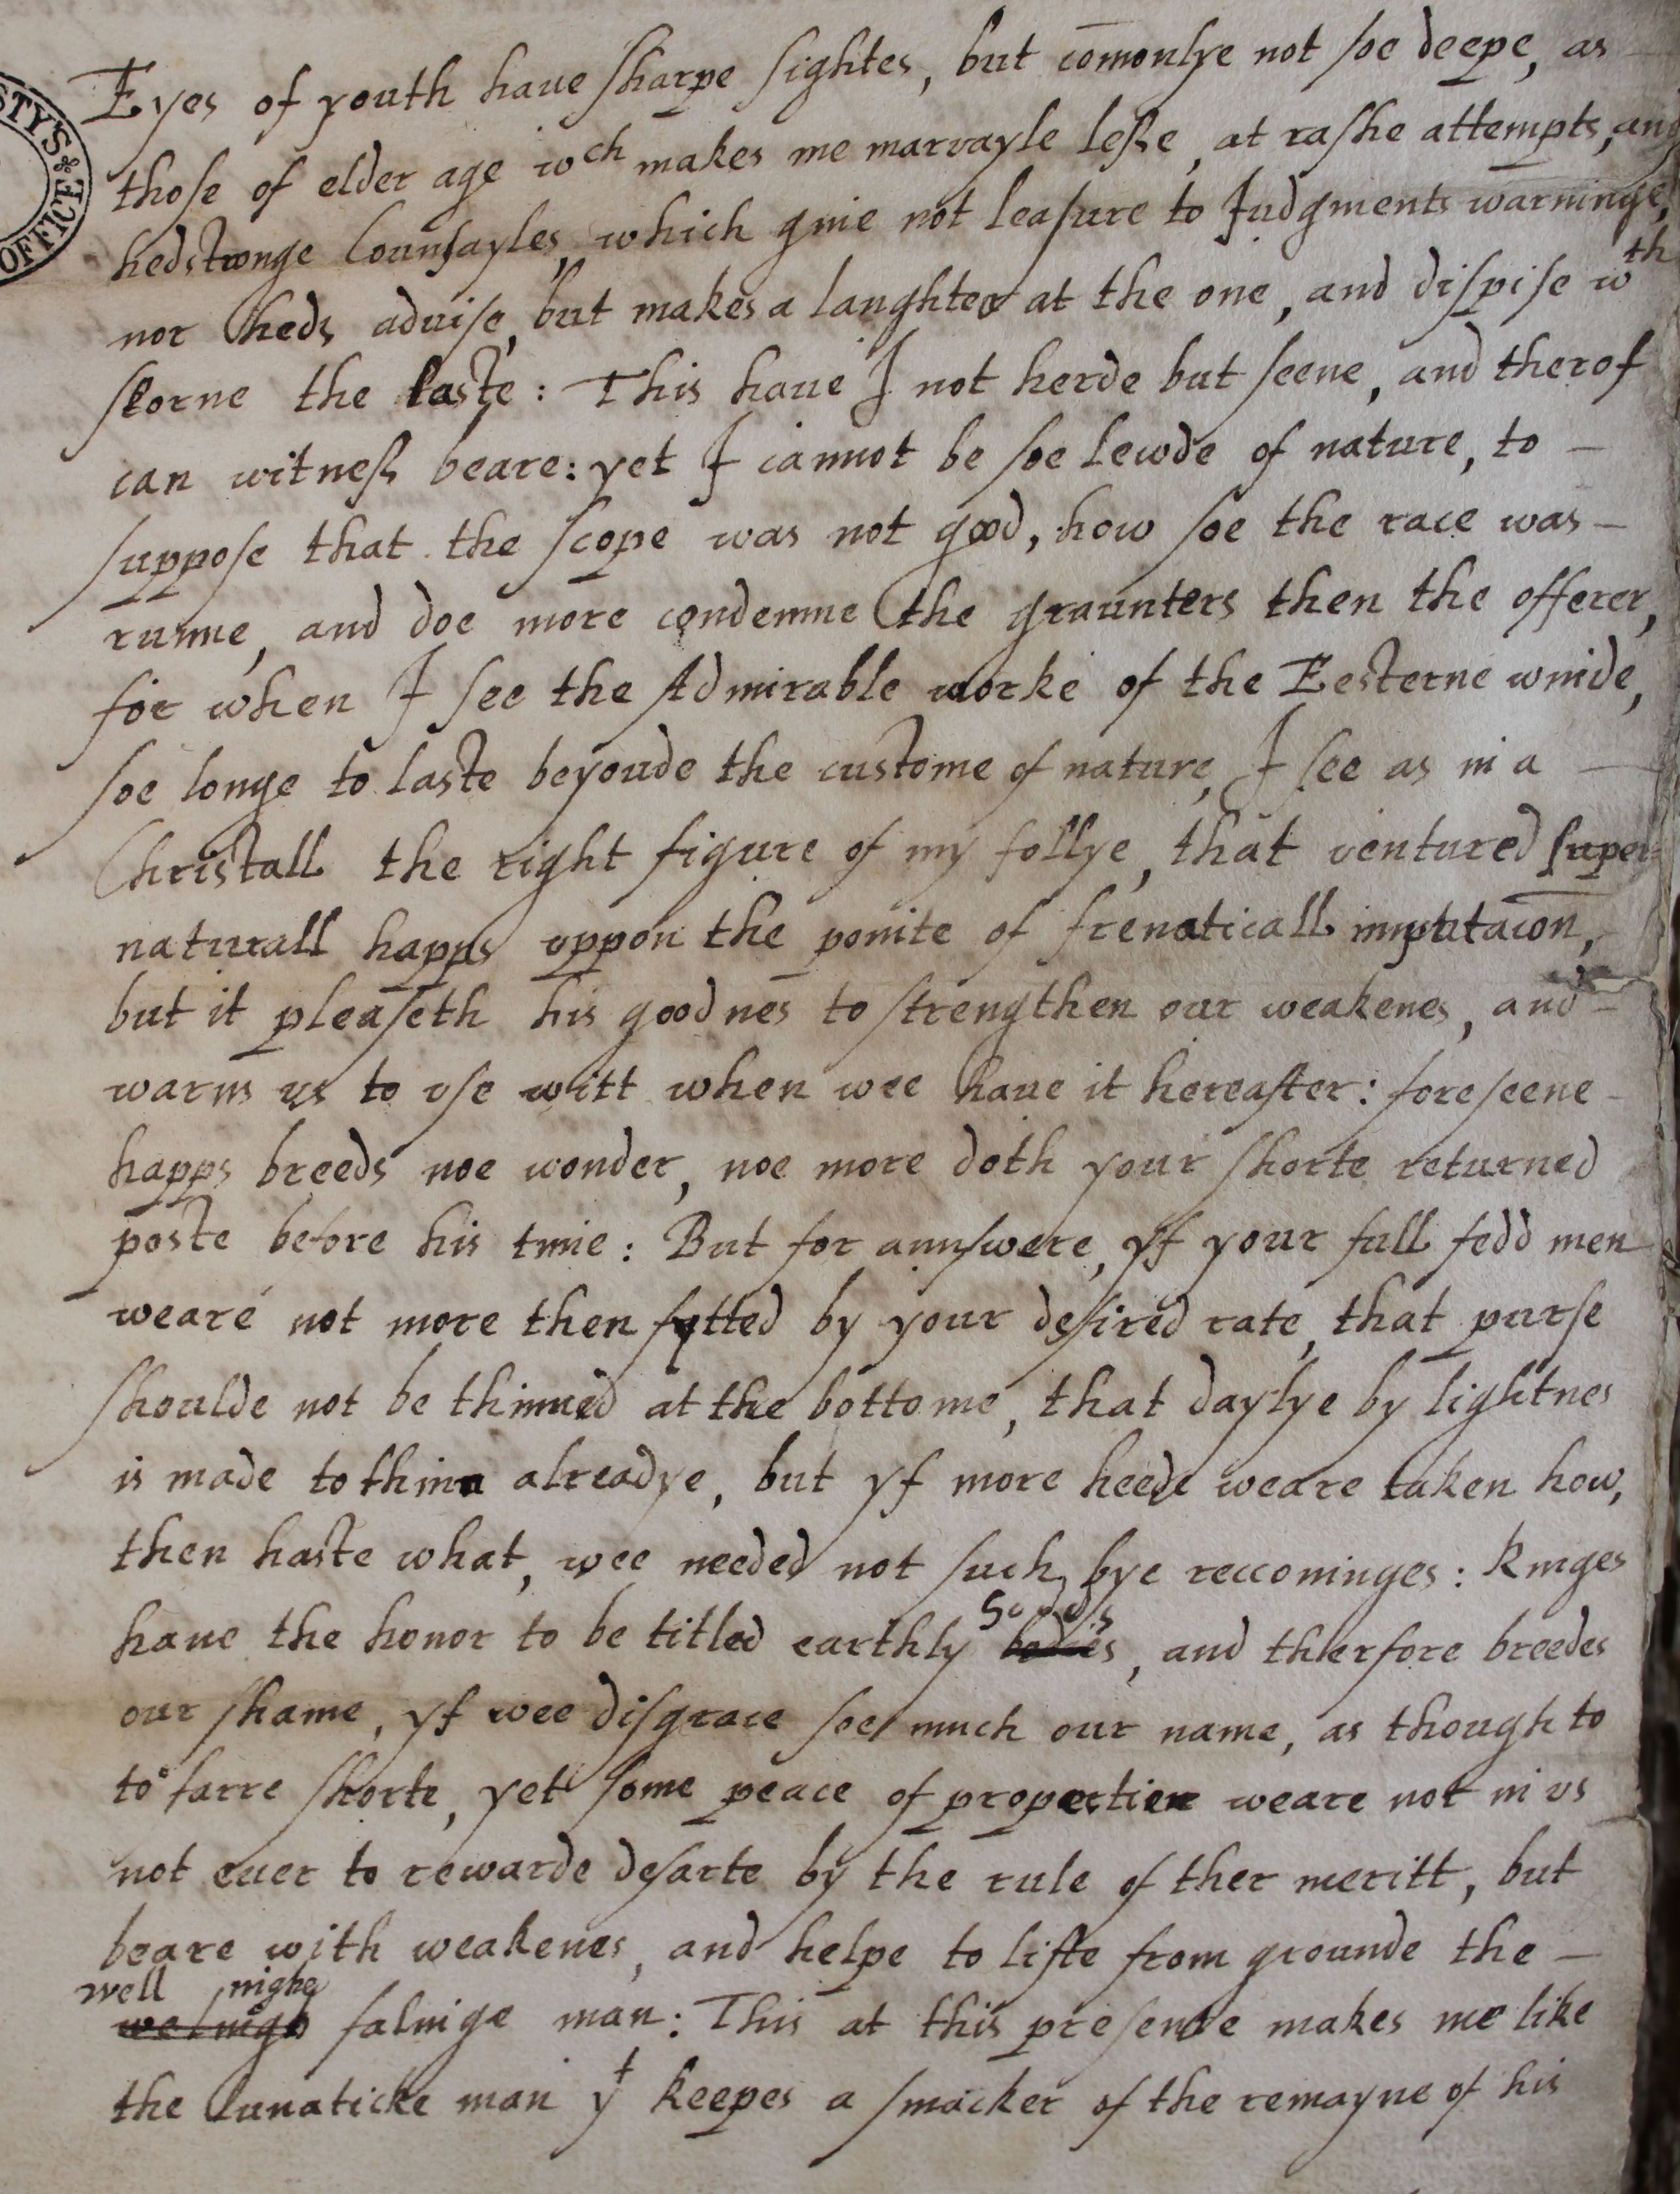 STY'S
OFFICE
Eyes of youth haue sharpe sightes, but com̄onlye not soe deepe, as
those of elder age wch makes me marvayle lesse, at rashe attempts, and
hedstronge Counsayles, which giue not leasure to Judgments warninge,
nor heds aduise, but makes a laughter at the one, and dispise wth
skorne the laste: This haue I not herde but seene, and therof
can witness beare: yet I cannot be soe lewde of nature, to
suppose that the scope was not good, how soe the race was
runne, and doe more condemne the graunters then the offerer,
for when I see the Admirable worke of the Eesterne winde,
soe longe to laste beyonde the custome of nature, I see as in a
Christall the right figure of my follye, that ventured super
naturall happs vppon the pointe of frenaticall imputac̄on,
but it pleaseth his goodnes to strengthen our weakenes, and
warns us to vse witt when wee haue it hereafter: foreseene
happs breeds noe wonder, noe more doth your shorte returned
poste before his time: But for aunswere, yf your full fedd men
weare not more then fytted by your desired rate, that purse
shoulde not be thinned at the bottome, that daylye by lightnes
is made to thinn alreadye, but yf more heede weare taken how,
then haste what, wee needed not such bye reccominges: Kinges
haue the honor to be titled earthly Godds, and therfore breedes
our shame, yf wee disgrace soe much our name, as though to
to farre shorte, yet some peace of propertien weare not in vs
not euer to rewarde desarte by the rule of ther meritt, but
beare with weakenes, and helpe to lifte from grounde the
well nighe
welnigh falinge man: This at this presente makes me like
the Lunaticke man yt keepes a smacker of the remayne of his